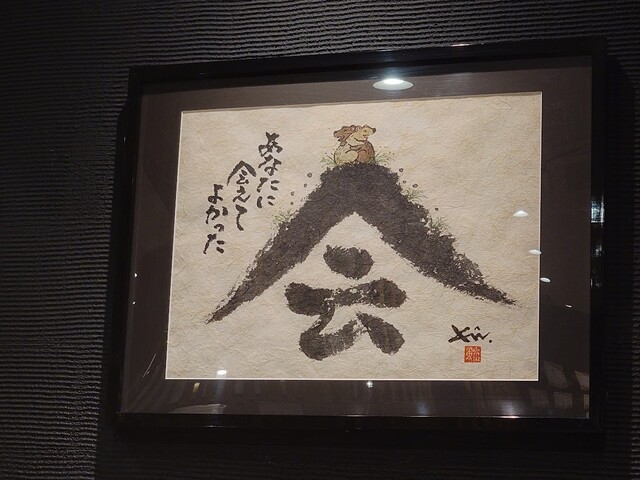 あなたに
会えて
よかった
会